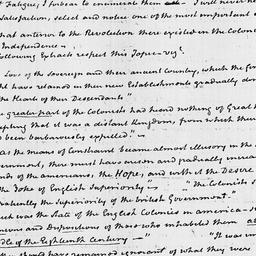 of Fatigue, I forbear to enumerate them I will never be
Satisfaction, select and notice one of the most important
that anterior to the Revolution there existed in the Colonies
Independence –
following Extracts respect this Topic – viz:
Love of the Sovereign and their ancient Country, which the first
have retained in their new Establishments gradually
the Hearts of their Descendants"
great part of the Colonists had heard nothing of Great
excepting that it was a distant Kingdom, from which their
been barbarously expelled" –
"as the means of Constraint became almost illusory in the
Government, there must have arisen and gradually increased
of the americans, the Hope, and with it the Desire
the Yoke of English Superiority – "The Colonists
the Superiority of the british Government."
such was the State of the English Colonies in america
and Dispositions of those who inhabited them
of the Eighteenth Century –" "It was
should have remained ignorant of what they were